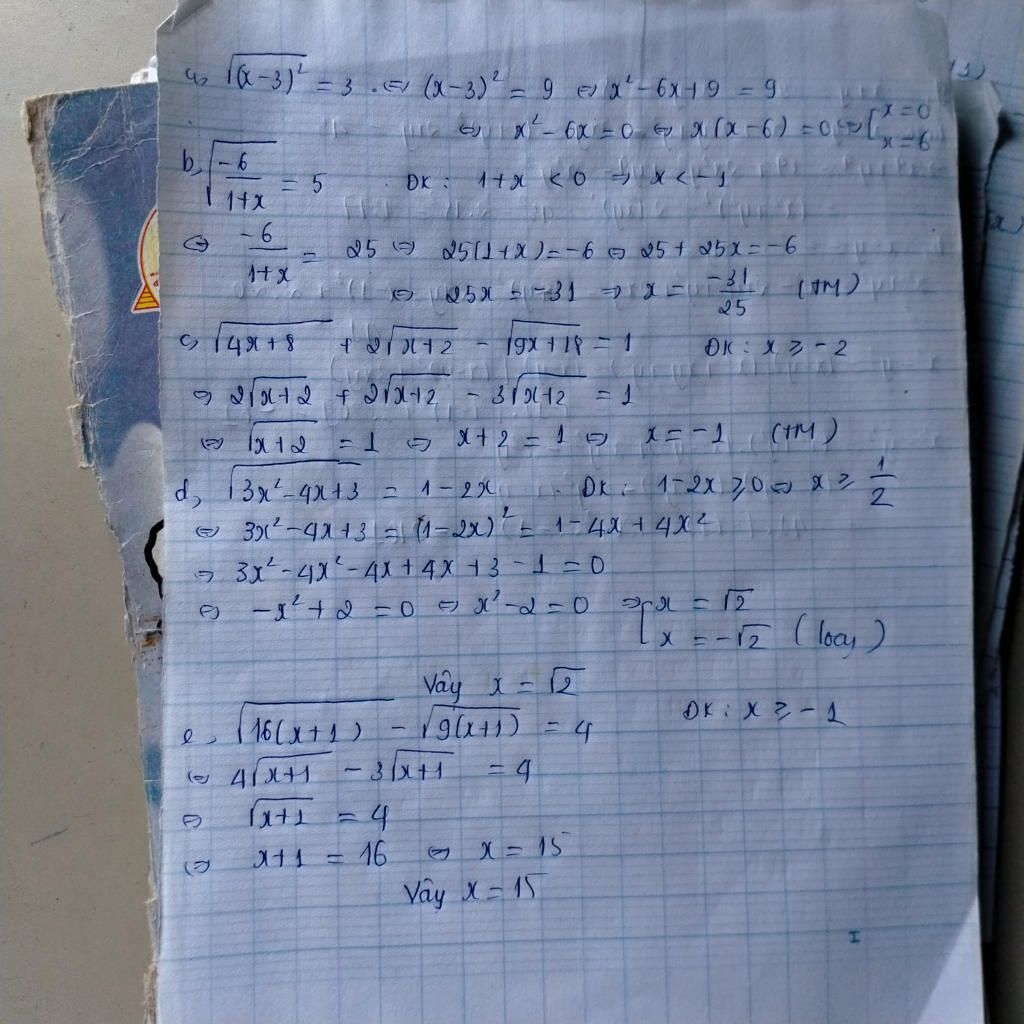 a, √(x-3)² = 3 ⇔ (x-3)² = 9 ⇔ x² - 6x + 9 = 9
⇔ x² - 6x = 0 ⇔ x(x-6) = 0 ⇔ [x=0
x=6
b, √(-6/(1+x)) = 5 ĐK: 1+x < 0 ⇒ x < -1
⇔ -6/(1+x) = 25 ⇔ 25(1+x) = -6 ⇔ 25 + 25x = -6
⇔ 25x = -31 ⇒ x = -31/25 (TM)
c, √(4x+8) + 2√(x+2) - √(9x+18) = 1 ĐK: x ≥ -2
⇔ 2√(x+2) + 2√(x+2) - 3√(x+2) = 1
⇔ √(x+2) = 1 ⇔ x+2 = 1 ⇔ x = -1 (TM)
d, √(3x²-4x+3) = 1-2x ĐK: 1-2x ≥ 0 ⇔ x ≥ 1/2
⇔ 3x²-4x+3 = (1-2x)² = 1-4x+4x²
⇔ 3x²-4x²-4x+4x+3-1 = 0
⇔ -x²+2 = 0 ⇔ x²-2 = 0 ⇒ [x = √2
x = -√2 (loại)
Vậy x = √2
e, √(16(x+1)) - √(9(x+1)) = 4 ĐK: x ≥ -1
⇔ 4√(x+1) - 3√(x+1) = 4
⇔ √(x+1) = 4
⇔ x+1 = 16 ⇔ x = 15
Vậy x = 15
I